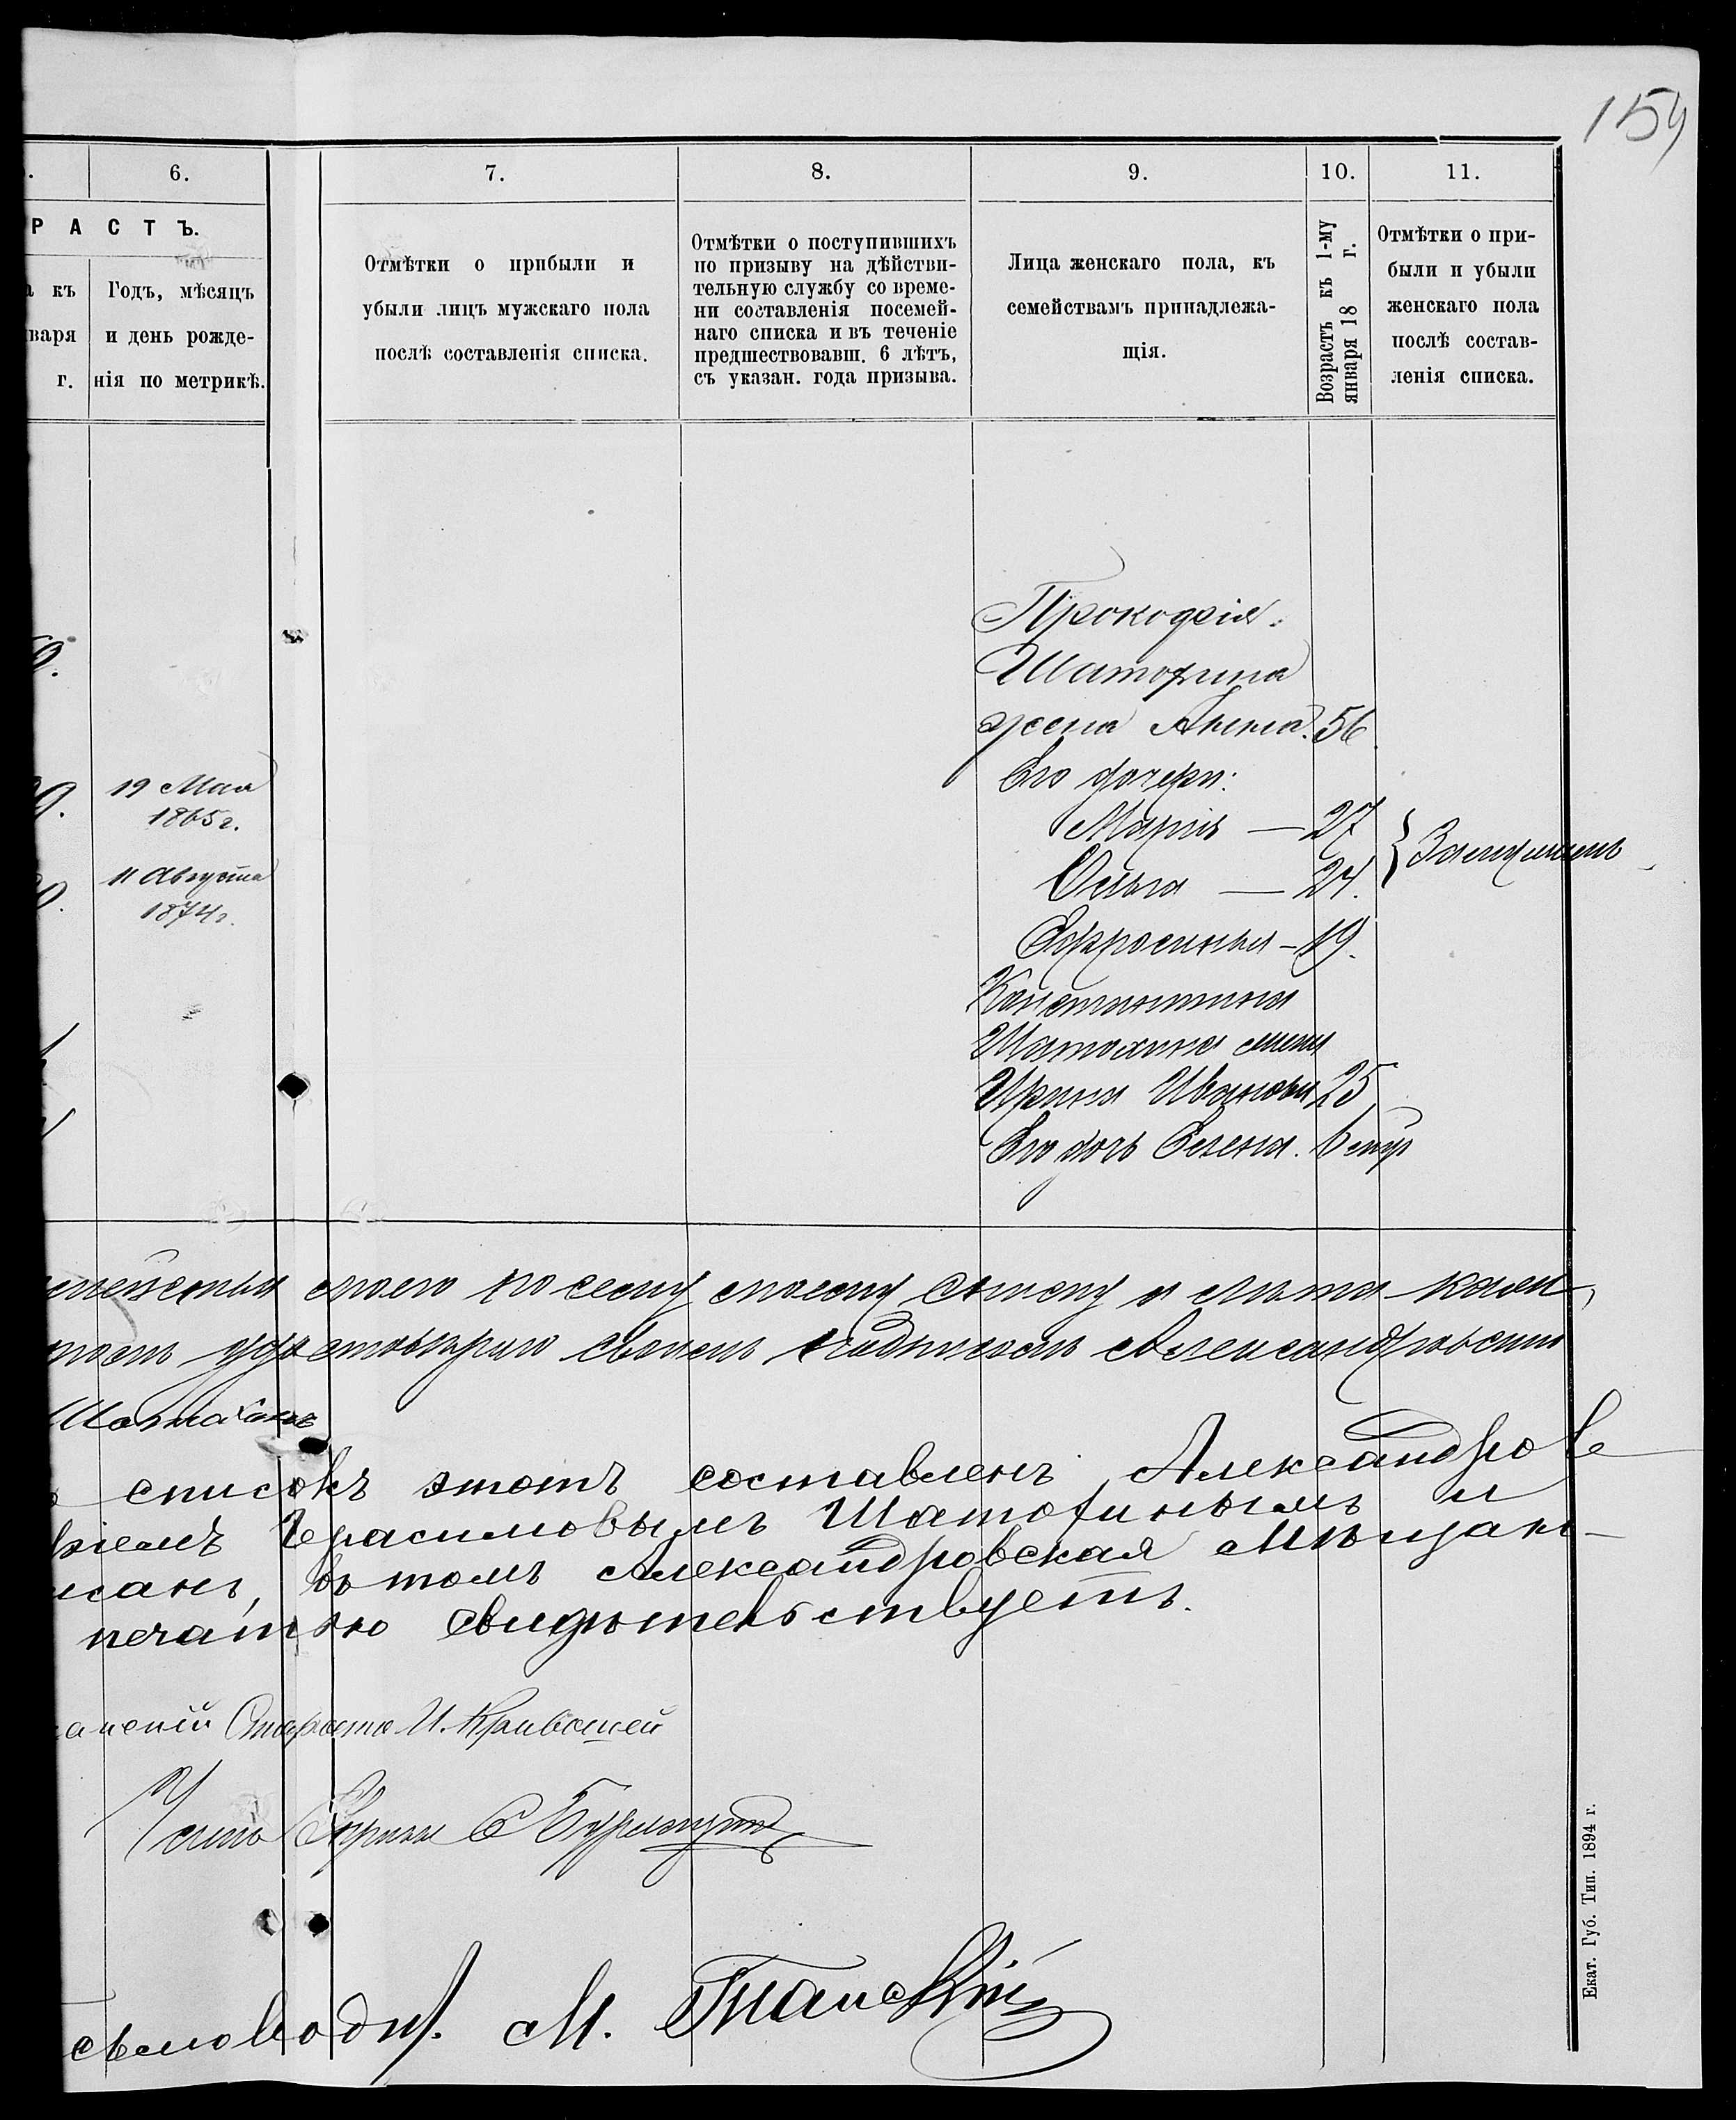 159
6.
7.
8.
9.
10.
11.
РАСТЪ.
къ
нваря
г.
Годъ, мѣсяцъ
и день рожде-
нія по метрикѣ.
Отмѣтки о прибыли и
убыли лицъ мужскаго пола
послѣ составленія списка.
Отмѣтки о поступившихъ
по призыву на дѣйстви-
тельную службу со време-
ни составленія посемей-
наго списка и въ теченіе
предшествовавш. 6 лѣтъ,
съ указан. года призыва.
Лица женскаго пола, къ
семействамъ принадлежа-
щія.
Возрастъ къ 1-му
января 18 г.
Отмѣтки о при-
были и убыли
женскаго пола
послѣ состав-
ленія списка.
Прокофія
Шатохина
жена Анна. 56
Его дочери:
19 Мая
1865 г.
Марія — 27
Замужемъ
11 Августа
1874 г.
Ольга — 24.
Ефросинья – 19.
Константина
Шатохина жена
Ирина Иванова 25
Его дочь Елена. 6
моего по сему
своимъ подписомъ Александровскій
Шатохинъ
списокъ этотъ составленъ Александров
Герасимовымъ Шатохинымъ и
въ томъ Александровская Мѣщан-
печатью свидѣтельствуетъ.
Староста И. Кривошей
М.
Екат. Губ. Тип. 1894 г.